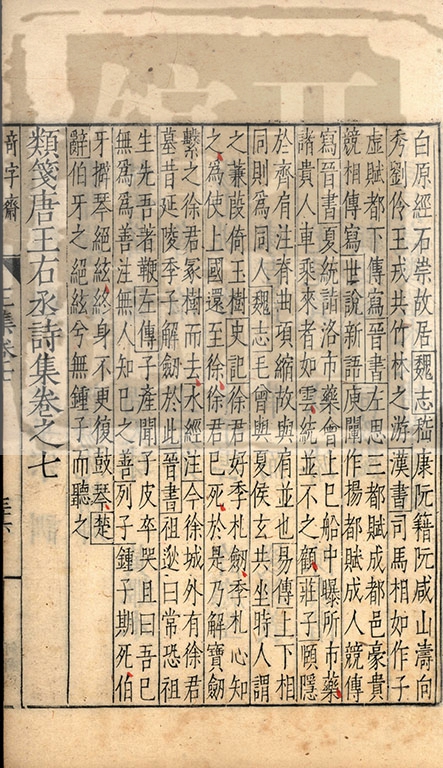 白原經石崇故居魏志嵇康阮籍阮咸山濤向
秀劉伶王戎共竹林之游漢書司馬相如作子
虛賦都下傳寫晉書左思三都賦成都邑豪貴
競相傳寫世說新語庾闡作揚都賦成人競傳
寫晉書夏統詣洛市藥會上巳船中曝所市藥
諸貴人車乘來者如雲統並不之顧莊子頤隱
於齊肩注脊曲項縮故與肩並也易傳上下相
同則為同人魏志毛曾與夏侯玄共坐時人謂
之蒹葭倚玉樹史記徐君好季札劔季札心知
之為使上國還至徐徐君已死於是乃解寶劔
繫之徐君冢樹而去水經注今徐城外有徐君
墓昔延陵季子解劔於此晉書祖逖曰常恐祖
生先吾著鞭左傳子產聞子皮卒哭且曰吾已
無為為善注無人知己之善列子鍾子期死伯
牙擗琴絕絃終身不更復鼓琴楚
辭伯牙之絕絃兮無鍾子而聽之
類箋唐王右丞詩集卷之七
奇字齋